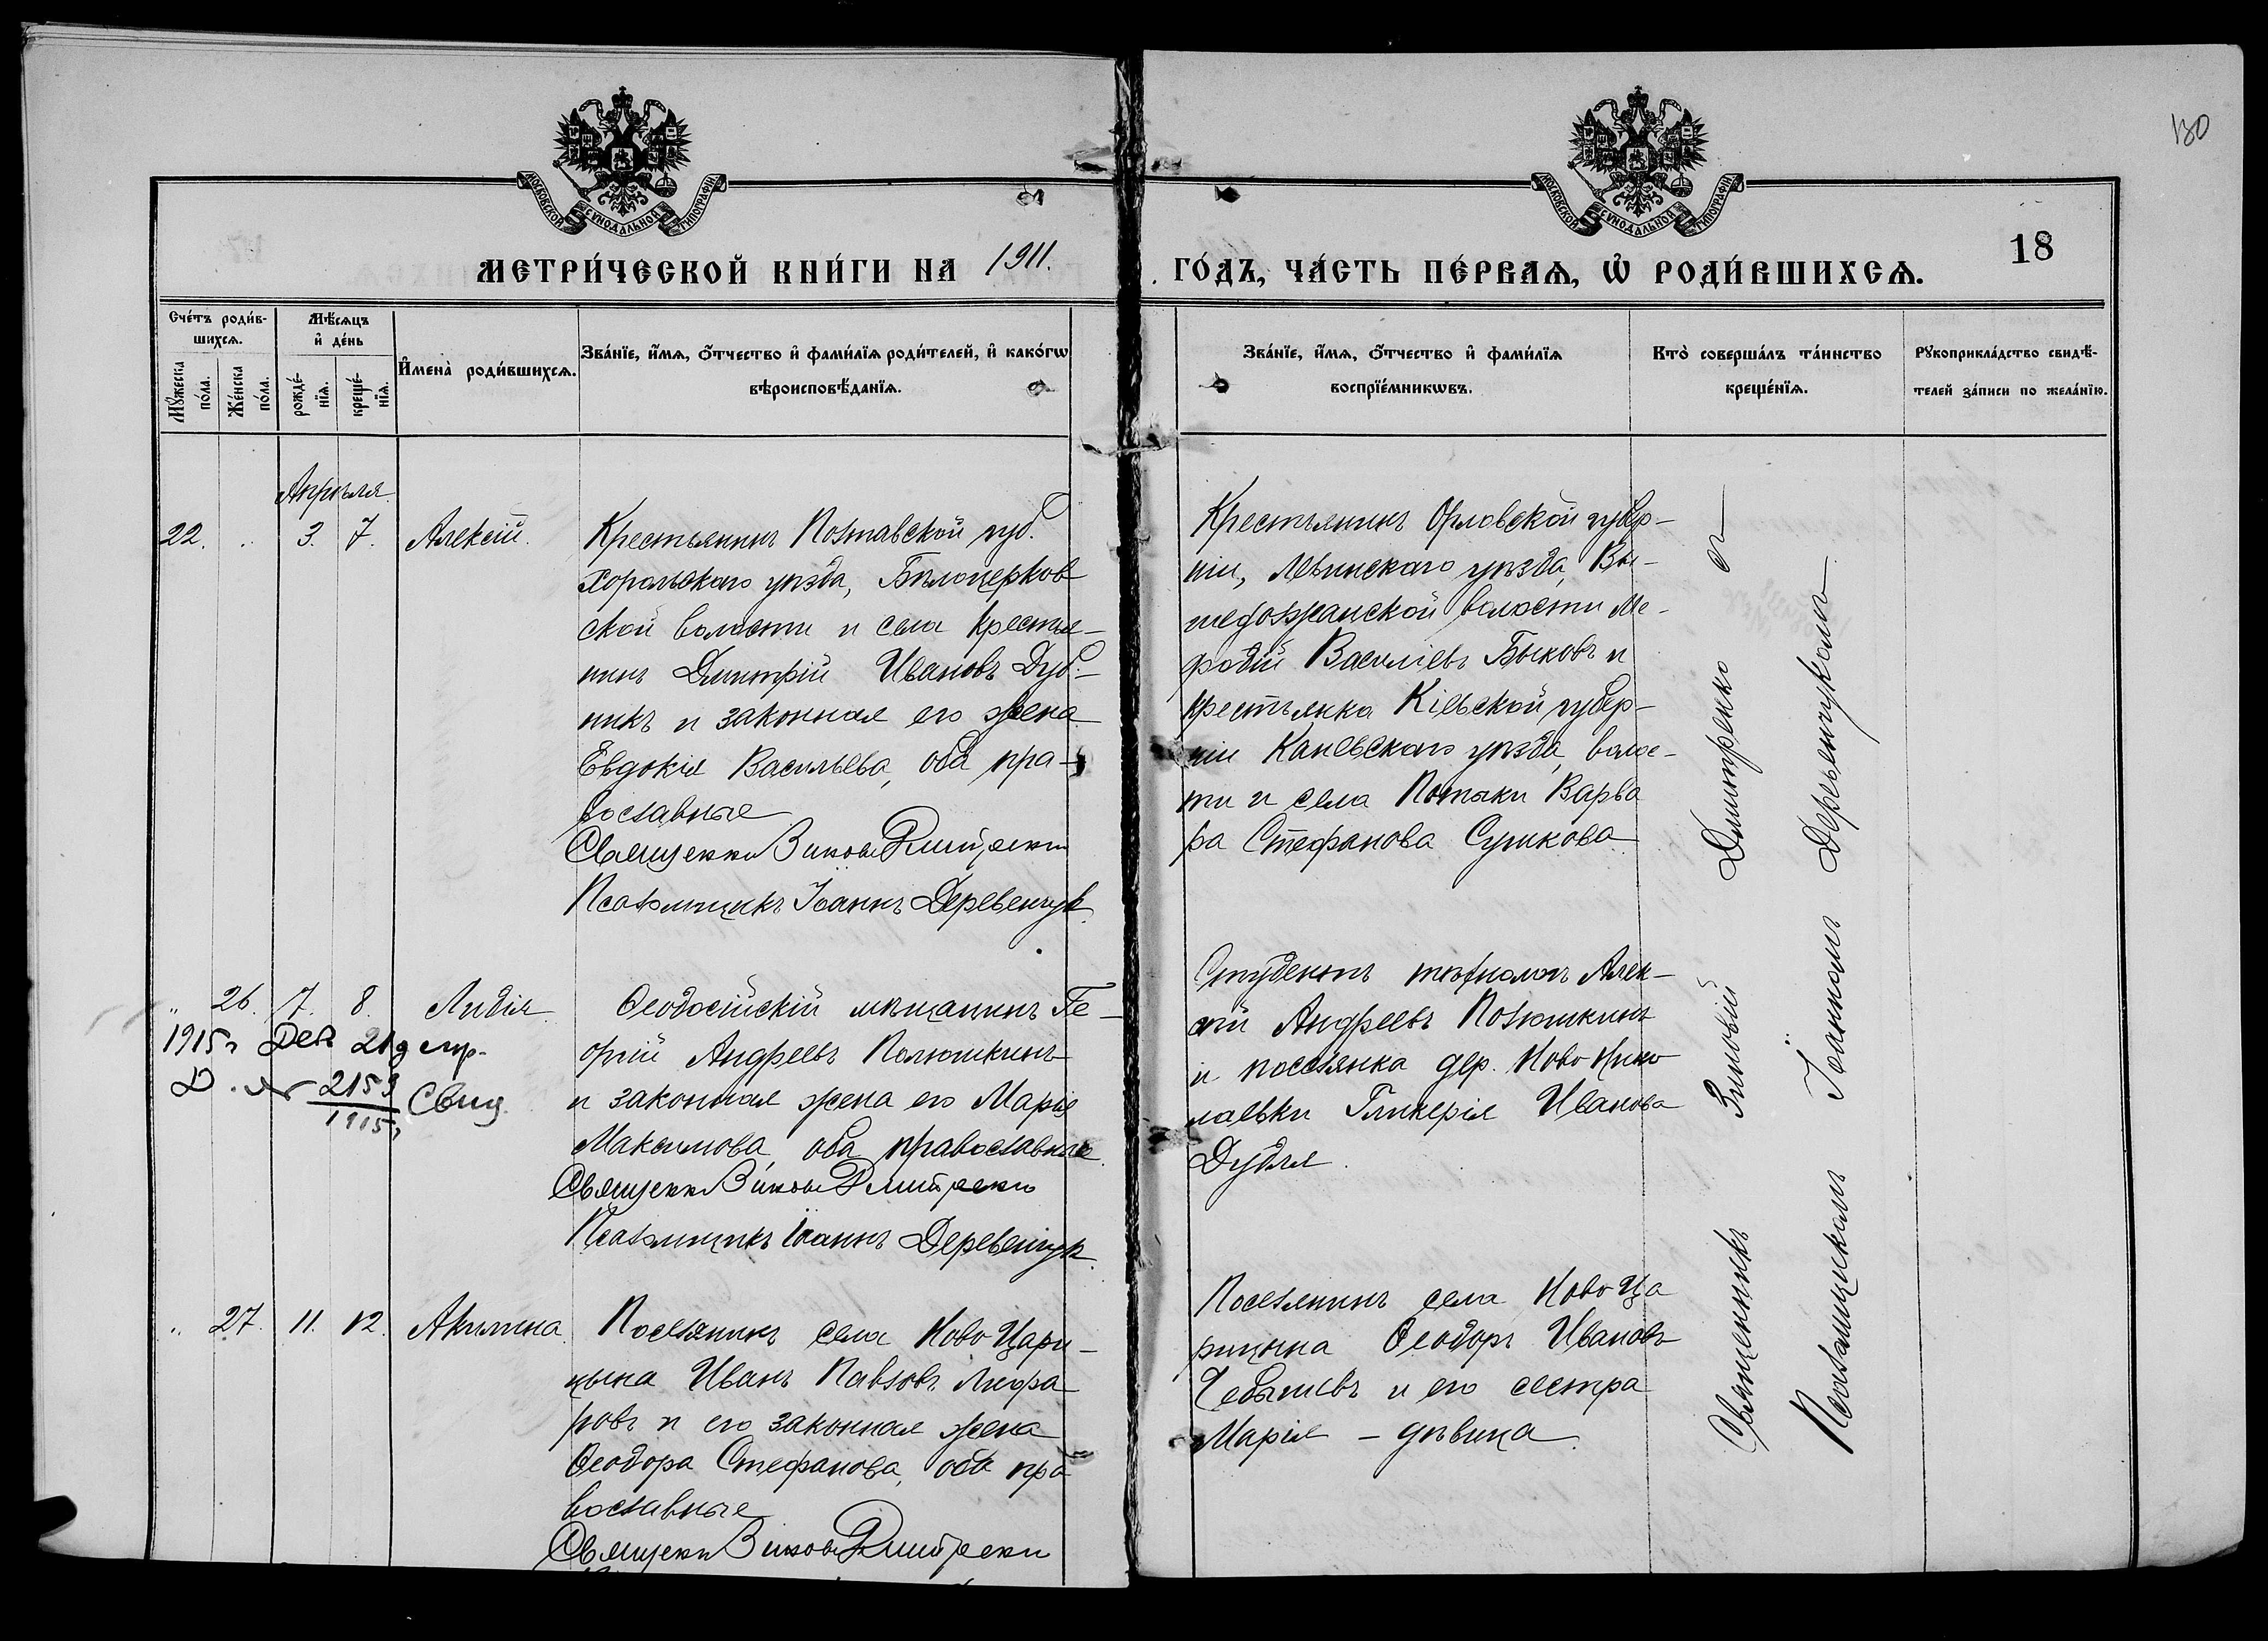 130
МОСКОВСКОЙ СУНОДАЛЬНОЙ ТИПОГРАФІИ
МОСКОВСКОЙ СУНОДАЛЬНОЙ ТИПОГРАФІИ
МЕТРИ́ЧЕСКОЙ КНИ́ГИ НА 1911.
ГО́ДЪ, ЧА́СТЬ ПЕ́РВАѦ, Ѡ҆ РОДИ́ВШИХСѦ.
18
Сче́тъ роди́в-
шихсѧ.
Мꙋ́жеска
по́ла.
Же́нска
по́ла.
Мѣ́сѧцъ
и҆ де́нь
рожде́-
нїѧ.
креще́-
нїѧ.
И҆мена̀ роди́вшихсѧ.
Зва́нїе, и҆́мѧ, ѻ҆́тчество и҆ фами́лїѧ роди́телей, и҆ како́гѡ
вѣроисповѣ́данїѧ.
Зва́нїе, и҆́мѧ, ѻ҆́тчество и҆ фами́лїѧ
воспрїе́мникѡвъ.
Кто̀ соверша́лъ та́инство
креще́нїѧ.
Рꙋкоприкла́дство свидѣ́-
телей за́писи по жела́нїю.
Апрѣля
22. .. 3. 7. Алексій.
Крестьянинъ Полтавской губ.
Хорольскаго уѣзда, Бѣлоцерков
ской волости и села крестья-
нинъ Димитрій Ивановъ Дуб-
никъ и законная его жена
Евдокія Васильева, оба пра-
вославные
Священникъ Зиновій Димитренко
Псаломщикъ Іоаннъ Деревенчук
Крестьянинъ Орловской губер-
ніи, уѣзда, Вы-
волости Ме-
фодій Василіевъ Быковъ и
крестьянка Кіевской губер-
ніи Каневскаго уѣзда, волос-
ти и села Потоки Варва
ра Стефанова Сушкова
,, 26. 7. 8. Лидія
1915 г. Дек 21 д
№ 2159
1915 г.
Свид.
Ѳеодосійскій мѣщанинъ Ге-
оргій Андреевъ Полюшкинъ
и законная жена его Марія
Максимова, оба православные.
Священникъ Зиновій Димитренко
Псаломщикъ Іоаннъ Деревенчук
Студентъ технологъ Алек-
сій Андреевъ Полюшкинъ
и поселянка дер. Ново Нико
лаевки Гликерія Иванова
Дубля.
,, 27. 11. 12. Акилина.
Поселянинъ села Ново Цари-
цына Иванъ Павловъ
ровъ и его законная жена
Ѳеодора Стефанова, оба пра
вославные
Священникъ Зиновій Димитренко
Поселянинъ села Ново Ца
рицына Ѳеодоръ Ивановъ
Чебышевъ и его сестра
Марія – дѣвица.
Священникъ Зиновій Димитренко съ
Псаломщикомъ Іоанномъ Деревенчукомъ